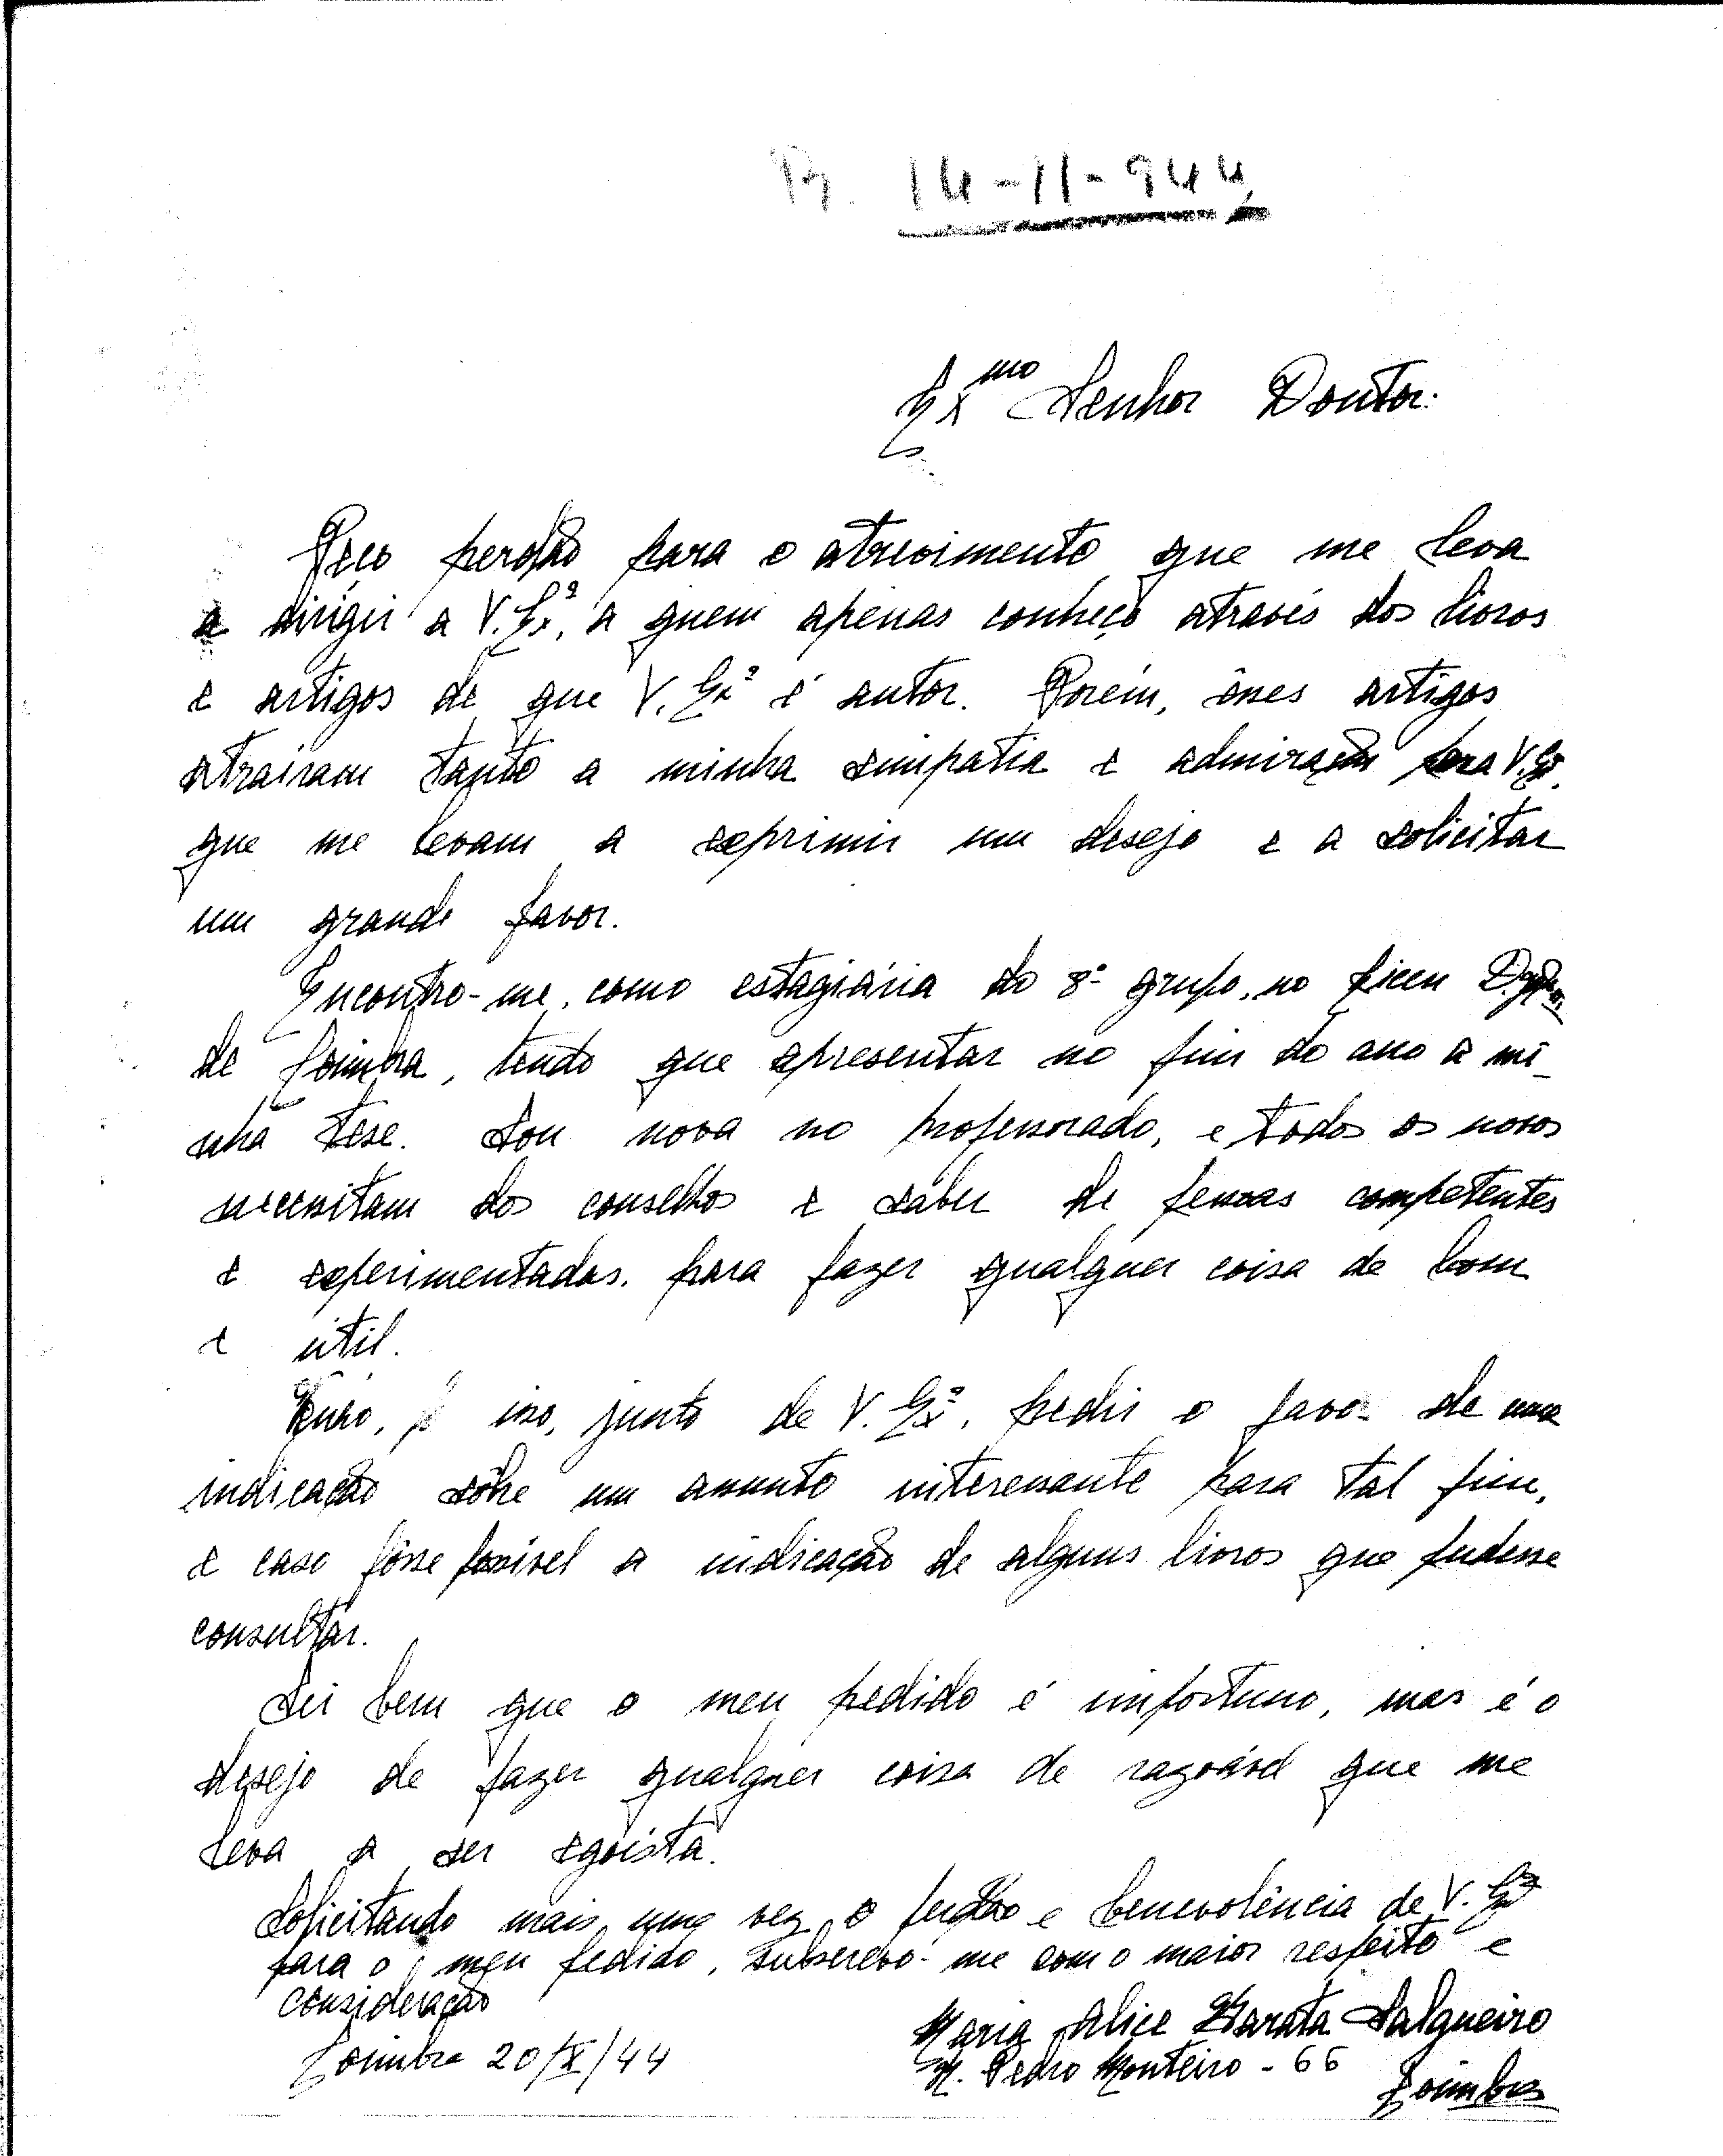 R. 14-11-944
Exmo Senhor Doutor:
Peço perdão para o atrevimento que me leva
a dirigir a V. Exª, a quem apenas conheço através dos livros
e artigos de que V. Exª é autor. Porém, êsses artigos
atrairam tanto a minha simpatia e admiração para V. Exª.
que me levam a exprimir um desejo e a solicitar
um grande favor.
Encontro-me, como estagiária do 8º grupo, no liceu
de Coimbra, tendo que apresentar no fim do ano a mi-
nha tese. Sou nova no professorado, e todos os novos
necessitam dos conselhos e saber de pessoas competentes
e experimentadas, para fazer qualquer coisa de bom
e útil.
Venho, p iso, junto de V. Exª, pedir o favor de uma
indicação sôbre um assunto interessante para tal fim,
e caso fôsse possivel a indicação de alguns livros que pudesse
consultar.
Sei bem que o meu pedido é importuno, mas é o
desejo de fazer qualquer coisa de razoável que me
leva a ser egoista.
Solicitando mais uma vez o perdão e benevolência de V. Exª
para o meu pedido, subscrevo-me com o maior respeito e
consideração
Maria Alice Barata Salgueiro
Coimbra 20/X/44
R. Pedro Monteiro - 66
Coimbra